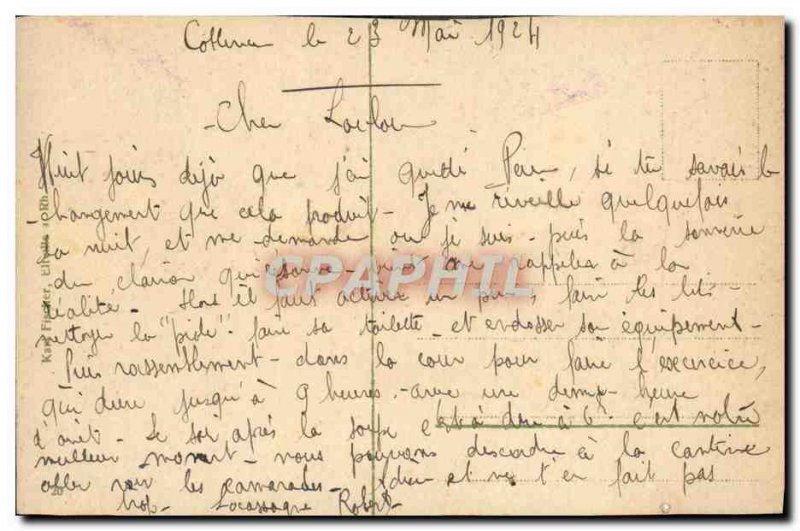 le 23 Mai 1924
Cher Loulou
Huit jours déjà que j'ai quitté , si tu savais le
changement que cela produit - Je me réveille quelquefois
la nuit, et me demande où je suis - puis la sonnerie
du clairon qui sonne vient me rappeler à la
réalité - il faut activer un peu faire les lits -
nettoyer la faire sa toilette et endosser son équipement -
Puis rassemblement - dans la cour pour faire l'exercice,
qui dure jusqu'à 9 heures - avec une demi-heure
d'arrêt - Le soir après la soupe c'est à dire à 6h c'est notre
meilleur moment - nous pouvons descendre à la cantine
aller voir les camarades - Adieu et ne t'en fait pas
trop - Lacassagne Robert
Karl Fischer,
20
CPAPHIL